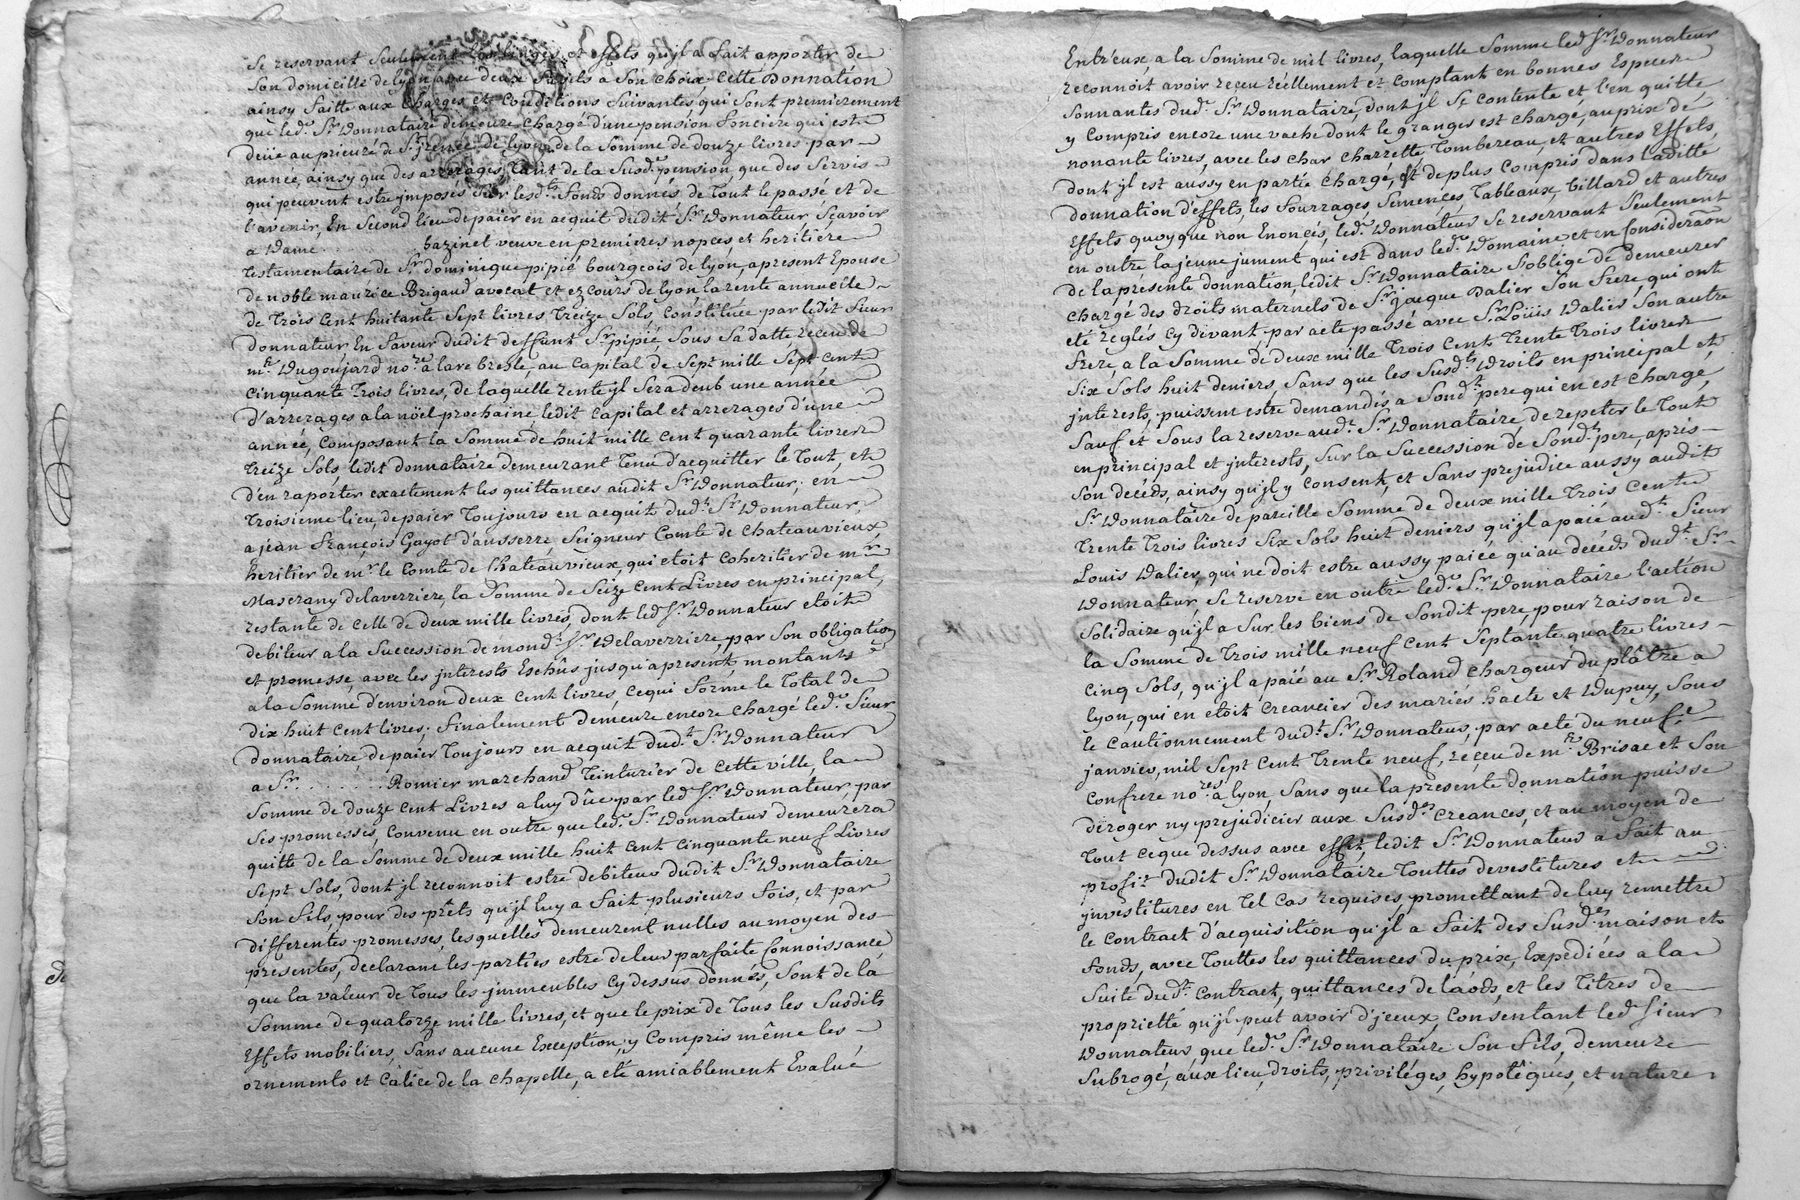 Se reservant seulement les linges et effets qu'jl a fait apporter de
son domicille de lyon avec deux fusils a son choix, Cette Donnation
ainsy faitte aux charges et conditions suivantes, qui sont premierement
que led. Sr. Donnataire demeure chargé d'une pension fonciere qui est
deüe au prieuré de St. jrenée de lyon de la somme de douze livres par
année, ainsy que des arrerages tant de la susd. pension, que des servis
qui peuvent estre jmposés sur lesd. fonds donnés, de tout le passé, et de
l'avenir, En second lieu de paier en acquit dudit Sr. Donnateur, sçavoir
a Dame . . . . . . . . bazinet veuve en premieres nopces et heritiere
testamentaire de Sr. dominique pipié bourgeois de lyon, apresent Epouse
de noble maurice Brigaud avocat et ez cours de lyon la rente annuelle
de trois cent huitante sept livres treize sols, constituée par ledit sieur
donnateur en faveur dudit deffunt Sr. pipié, sous sa datte, receu de
me. Dugoujard nore. a larebresle, au capital de sept mille sept cent
cinquante trois livres, de laquelle rente jl sera deub une année
d'arrerages a la nöel prochaine, ledit capital et arrerages d'une
année, composant la somme de huit mille cent quarante livres
treize sols, ledit donnataire demeurant tenu d'acquitter le tout, et
d'en raporter exactement les quittances audit Sr. Donnateur; en
troisieme lieu, de paier toujours en acquit dudt. Sr. Donnateur,
a jean françois Gayot d'ausserre, Seigneur Comte de Chateauvieux
heritier de mr. le Comte de Chateauvieux, qui etoit coheritier de mr.
Mascrany delaverriere, la somme de seize cent Livres en principal,
restante de celle de deux mille livres, dont led Sr. Donnateur etoit
debiteur a la succession de mondt. Sr. Delaverriere, par son obligation
et promesse, avec les jnterests Eschûs jusqu'apresent, montants
a la somme d'environ deux cent livres, ce qui forme le total de
dix huit cent livres; finalement demeure encore chargé led. sieur
donnataire, de paier toujours en acquit dudt. Sr. Donnateur
a Sr. . . . . . . . Romier marchand teinturier de cette ville, la
somme de douze cent Livres a luy dûe par led Sr. Donnateur, par
ses promesses, convenu en outre que led. Sr. Donnateur demeurera
quitte de la somme de deux mille huit cent cinquante neuf Livres
sept sols, dont jl reconnoit estre debiteur dudit Sr. Donnataire
son fils, pour des prêts qu'jl luy a fait plusieurs fois, et par
differentes promesses, lesquelles demeurent nulles au moyen des
presentes, declarant les parties estre de leur parfaite connoissance
que la valeur de tous les jmmeubles cy dessus donnés, sont de la
somme de quatorze mille livres, et que le prix de tous les susdits
Effets mobiliers, sans aucune Exception, y compris même les
ornements et câlice de la chapelle, a eté amiablement Evalué
Entr'eux, a la somme de mil livres, laquelle somme led Sr. Donnateur
reconnoit avoir receu réellement et comptant en bonnes Especes
sonnantes dud. Sr. Donnataire, dont jl se contente et l'en quitte
y compris encore une vache dont le granger est chargé, au prix de
nonante livres, avec les char charrette, tombereau, et autres Effets,
dont jl est aussy en partie chargé, et de plus compris dans laditte
donnation d'effets, les fourrages, semences, tableaux, billard et autres
Effets quoyque non Enoncés, led. Donnateur se reservant seulement
en outre la jeune jument qui est dans led. Domaine et en consideraon
de la presente donnation, ledit Sr. Donnataire s'oblige de demeurer
chargé des droits maternels de Sr. jacque Dalier son frere, qui ont
eté reglés cy devant, par acte passé avec Sr. Loüis Dalier son autre
frere a la somme de deux mille trois cent trente trois livres
six sols huit deniers, sans que les susdts. droits en principal et
jnterests, puissent estre demandés a sondt. pere qui en est chargé,
sauf et sous la reserve audt. Sr. Donnataire, de repeter le tout
en principal et jnterests, sur la succession de sondt. pere, apres
son decéds, ainsy qu'jl y consent, et sans prejudice aussy audit
Sr. Donnataire de pareille somme de deux mille trois cent
trente trois livres six sols huit deniers qu'jl a paié audt. sieur
Louis Dalier, qui ne doit estre aussy paiée qu'au decéds dudt. Sr.
Donnateur, se reserve en outre led. Sr. Donnataire l'action
solidaire qu'jl a sur les biens de sondit pere, pour raison de
la somme de trois mille neuf cent septante quatre livres
cinq sols, qu'jl a paié au Sr. Roland chargeur du plâtre a
lyon, qui en etoit creancier des mariés hacte et Dupuy, sous
le cautionnement dudt. Sr. Donnateur, par acte du neufe.
janvier, mil sept cent trente neuf, receu de me. Brisac et son
confrere nores. a lyon, sans que la presente donnation puisse
déroger ny prejudicier aux susdes. creances, et au moyen de
tout ce que dessus avec effet, ledit Sr. Donnateur a fait au
profit dudit Sr. Donnataire touttes devestitures et
jnvestitures en tel cas requises promettant de luy remettre
le contract d'acquisition qu'jl a fait des susdes. maison et
fonds, avec touttes les quittances du prix, Expediées a la
suite dudt. contract, quittances de laods, et les titres de
proprietté qu'jl peut avoir d'jceux, consentant led sieur
Donnateur, que led. Sr. Donnataire son fils, demeure
subrogé, aux lieu, droits, priviléges, hypotêques, et nature